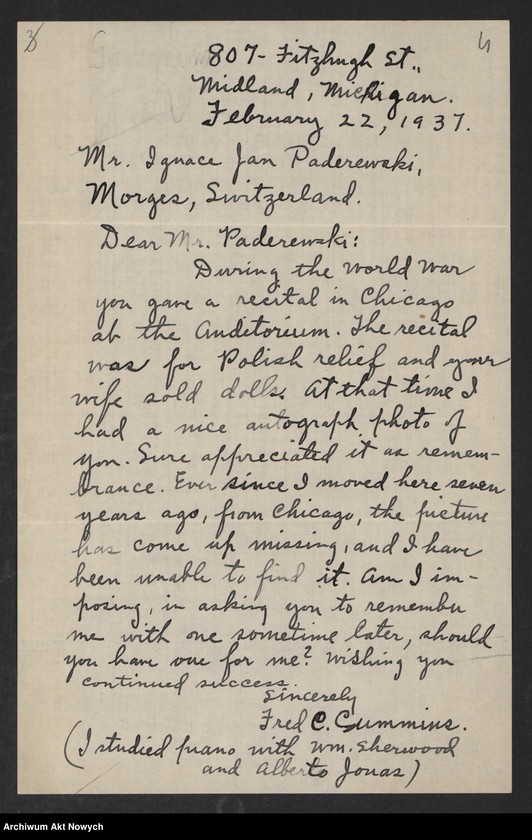 807- Fitzhugh St.,
Midland, Michigan.
February 22, 1937.
Mr. Ignace Jan Paderewski,
Morges, Switzerland.
Dear Mr. Paderewski:
During the world war
you gave a recital in Chicago
at the Auditorium. The recital
was for Polish relief and your
wife sold dolls. At that time I
had a nice autograph photo of
you. Sure appreciated it as remem-
brance. Ever since I moved here seven
years ago, from Chicago, the picture
has come up missing, and I have
been unable to find it. Am I im-
posing, in asking you to remember
me with one sometime later, should
you have one for me? Wishing you
continued success.
Sincerely
Fred C. Cummins.
(I studied piano with Wm. Sherwood
and Alberto Jonas)
Archiwum Akt Nowych